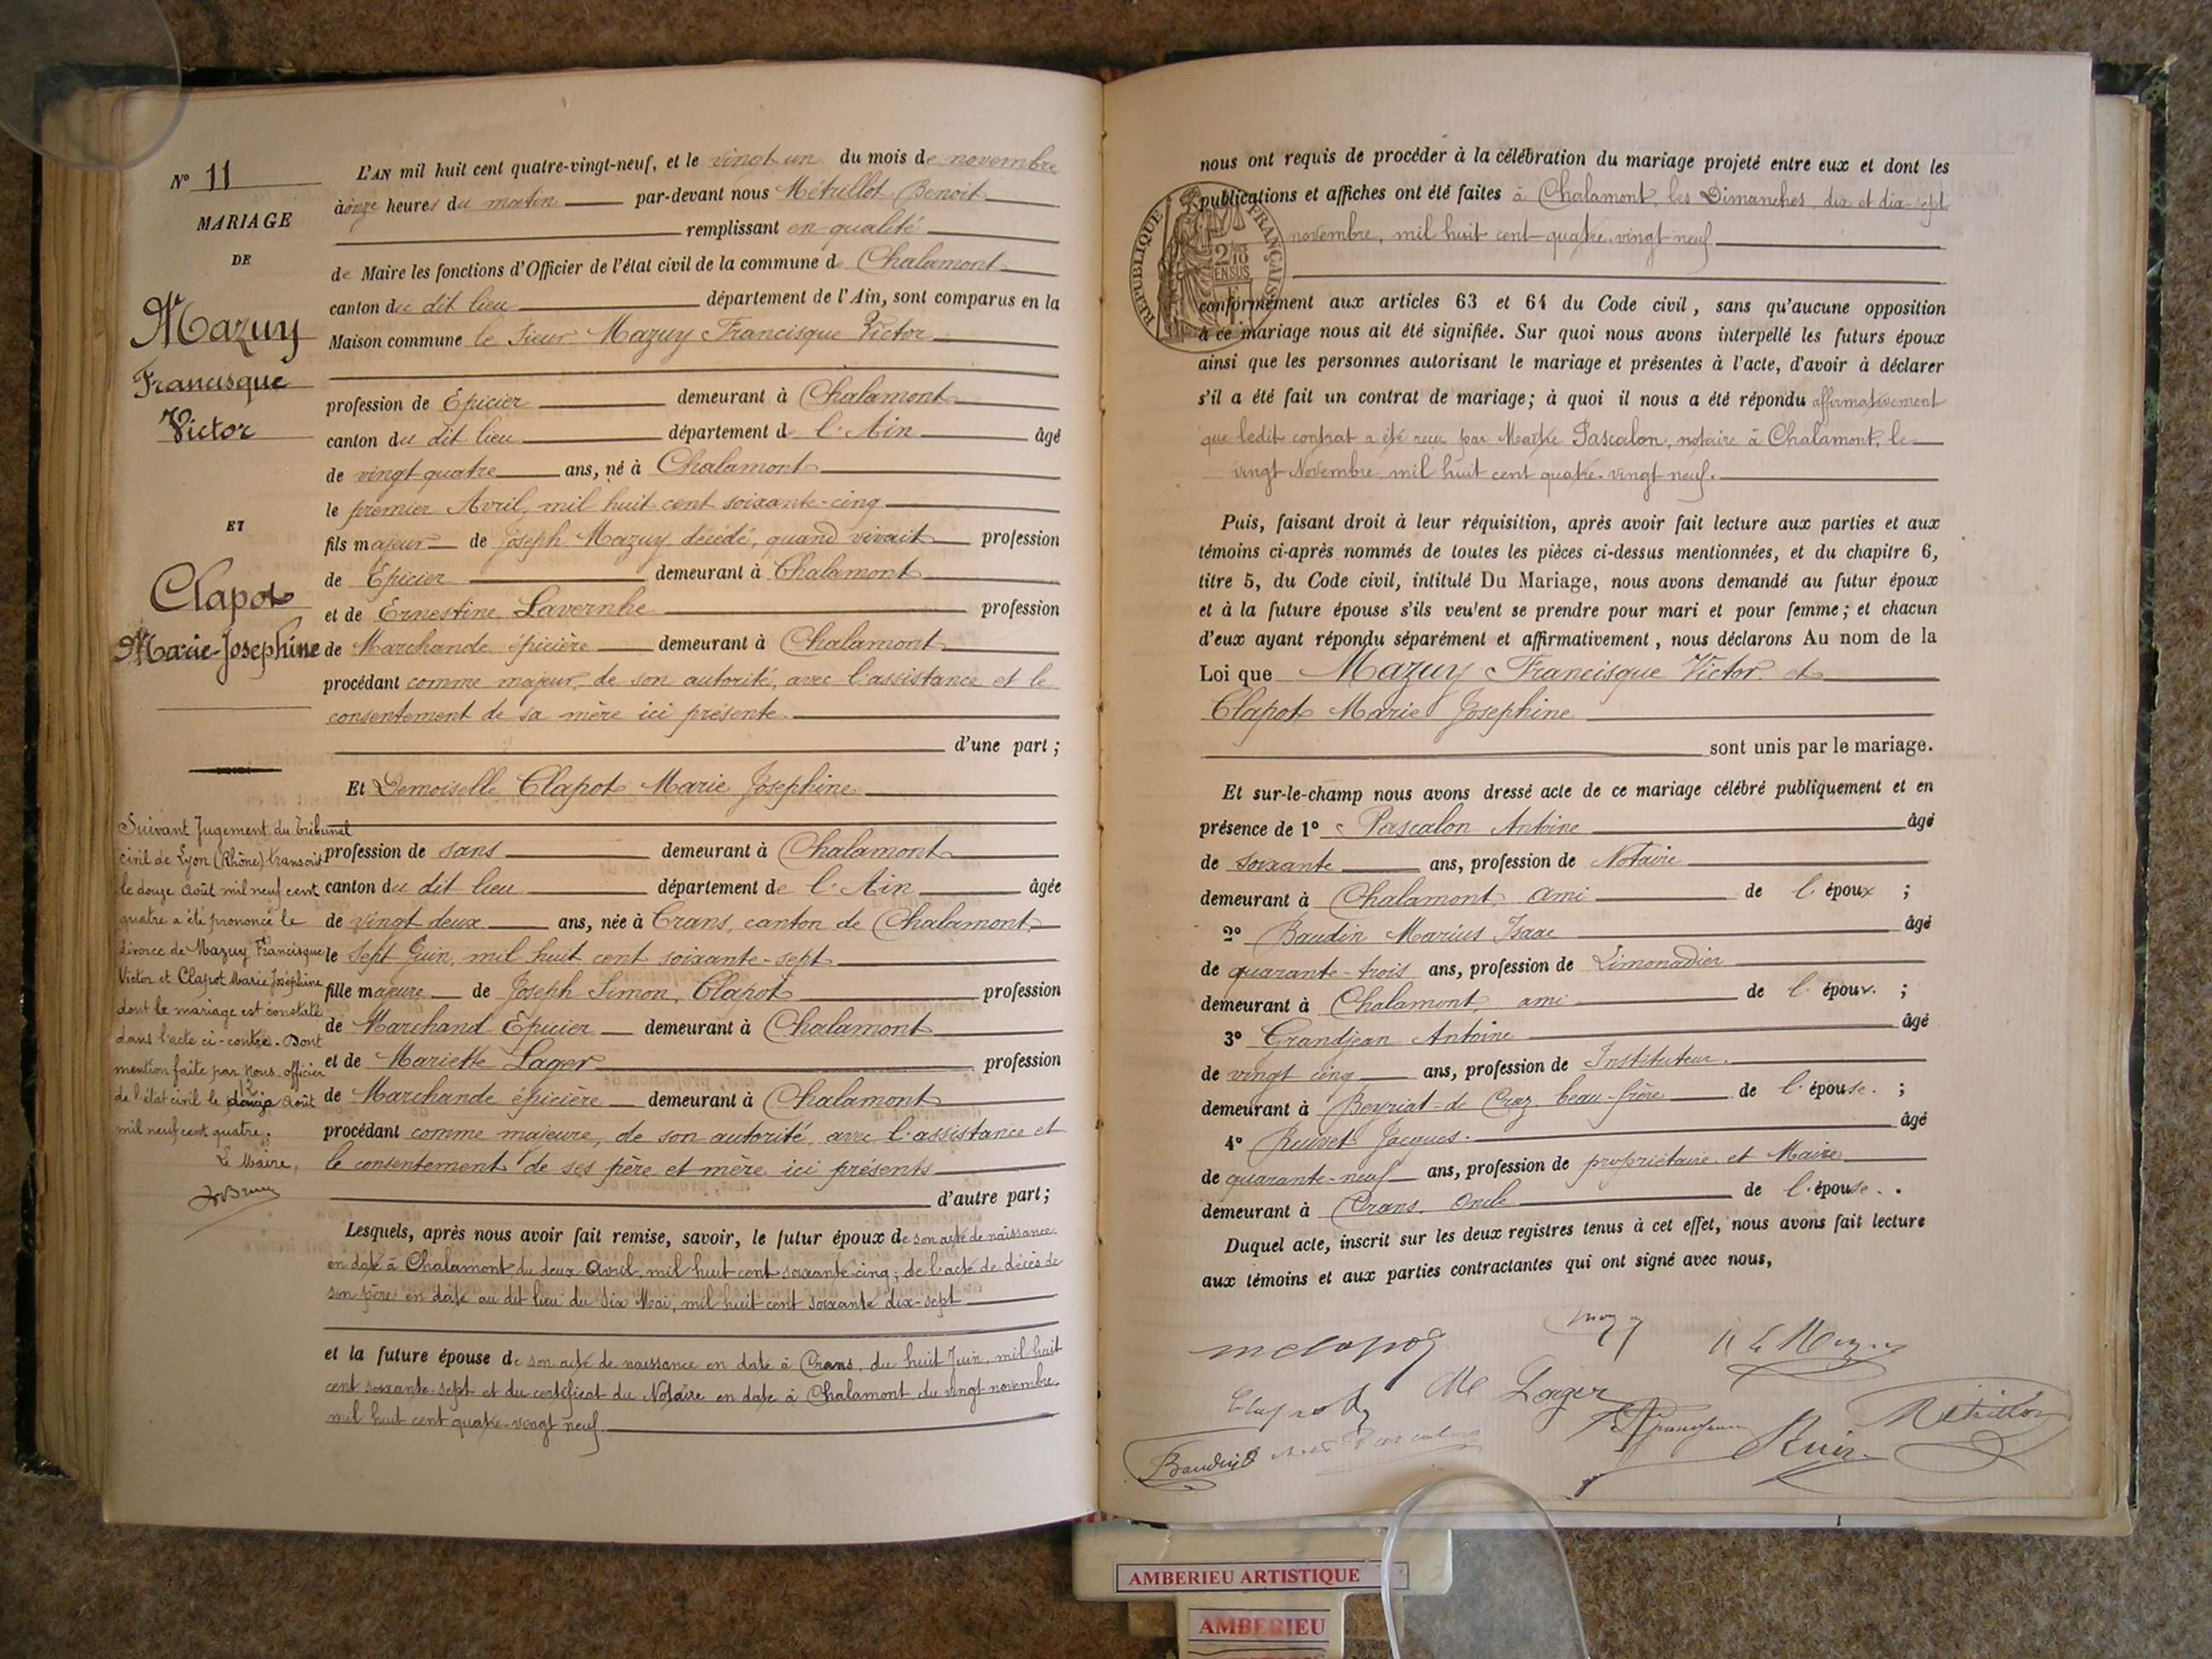 N° 11
MARIAGE
DE
Mazuy
Francisque
Victor
ET
Clapot
Marie-Josephine
Suivant Jugement du Tribunal
civil de Lyon (Rhône) transcrit
le douze Août mil neuf cent
quatre a été prononcé le
divorce de Mazuy Francisque
Victor et Clapot Marie Joséphine
dont le mariage est constaté
dans l'acte ci-contre. Dont
mention faite par nous officier
de l'état civil le 12 août
mil neuf cent quatre.
Le Maire,
L'AN mil huit cent quatre-vingt-neuf, et le vingt un du mois de novembre
à onze heures du matin par-devant nous Métrillot Benoit
remplissant en qualité
de Maire les fonctions d'Officier de l'état civil de la commune de Chalamont
canton du dit lieu département de l'Ain, sont comparus en la
Maison commune le Sieur Mazuy Francisque Victor
profession de Epicier demeurant à Chalamont
canton du dit lieu département de l'Ain âgé
de vingt quatre ans, né à Chalamont
le premier Avril, mil huit cent soixante-cinq
fils majeur de Joseph Mazuy décédé, quand vivait profession
de Epicier demeurant à Chalamont
et de Ernestine Lavernhe profession
de Marchande épicière demeurant à Chalamont
procédant comme majeur, de son autorité, avec l'assistance et le
consentement de sa mère ici présente.
d'une part ;
Et Demoiselle Clapot Marie Josephine
profession de sans demeurant à Chalamont
canton du dit lieu département de l'Ain âgée
de vingt deux ans, née à Crans, canton de Chalamont,
le sept Juin, mil huit cent soixante-sept
fille majeure de Joseph Simon, Clapot profession
de Marchand Epicier demeurant à Chalamont
et de Mariette Lager profession
de Marchande épicière demeurant à Chalamont
procédant comme majeure, de son autorité, avec l'assistance et
le consentement de ses père et mère ici présents
d'autre part ;
Lesquels, après nous avoir fait remise, savoir, le futur époux de son acte de naissance
en date à Chalamont du deux Avril, mil huit cent soixante-cinq ; de l'acte de décès de
son père en date au dit lieu du six Mai, mil huit cent soixante dix-sept
et la future épouse de son acte de naissance en date à Crans, du huit Juin, mil huit
cent soixante-sept et du certificat du Notaire en date à Chalamont, du vingt novembre
mil huit cent quatre-vingt neuf.
nous ont requis de procéder à la célébration du mariage projeté entre eux et dont les
publications et affiches ont été faites à Chalamont, les Dimanches, dix et dix-sept
novembre, mil huit cent-quatre-vingt-neuf
REPUBLIQUE FRANÇAISE
2/10 EN SUS
conformément aux articles 63 et 64 du Code civil, sans qu'aucune opposition
à ce mariage nous ait été signifiée. Sur quoi nous avons interpellé les futurs époux
ainsi que les personnes autorisant le mariage et présentes à l'acte, d'avoir à déclarer
s'il a été fait un contrat de mariage; à quoi il nous a été répondu affirmativement
que ledit contrat a été reçu par Maître Pascalon, notaire à Chalamont, le
vingt Novembre mil huit cent quatre-vingt neuf.
Puis, faisant droit à leur réquisition, après avoir fait lecture aux parties et aux
témoins ci-après nommés de toutes les pièces ci-dessus mentionnées, et du chapitre 6,
titre 5, du Code civil, intitulé Du Mariage, nous avons demandé au futur époux
et à la future épouse s'ils veulent se prendre pour mari et pour femme ; et chacun
d'eux ayant répondu séparément et affirmativement, nous déclarons Au nom de la
Loi que Mazuy Francisque Victor et
Clapot Marie Josephine
sont unis par le mariage.
Et sur-le-champ nous avons dressé acte de ce mariage célébré publiquement et en
présence de 1° Pascalon Antoine âgé
de soixante ans, profession de Notaire
demeurant à Chalamont, ami de l'époux ;
2° Baudin Marius Isaac âgé
de quarante-trois ans, profession de Limonadier
demeurant à Chalamont, ami de l'époux. ;
3° Grandjean Antoine âgé
de vingt cinq ans, profession de Instituteur.
demeurant à Beyriat-de Craz, beau-frère de l'épouse. ;
4° Ruivet Jacques. âgé
de quarante-neuf ans, profession de propriétaire et Maire
demeurant à Crans. Oncle de l'épouse.
Duquel acte, inscrit sur les deux registres tenus à cet effet, nous avons fait lecture
aux témoins et aux parties contractantes qui ont signé avec nous,
m clapot
Clapot
Lager
Grandjean
Métrillot
Baudin
AMBERIEU ARTISTIQUE
AMBERIEU